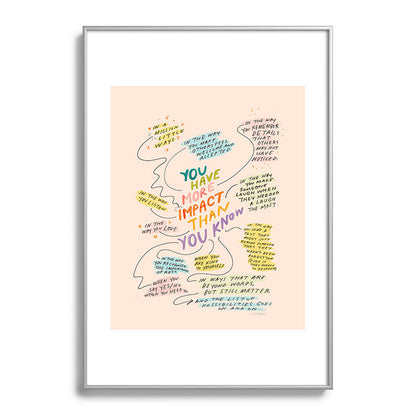 IN A
MILLION
LITTLE
WAYS!
IN THE WAY
YOU MAKE
OTHERS FEEL
WELCOME AND
ACCEPTED
IN THE WAY
YOU REMEMBER
DETAILS
THAT
OTHERS
MAY NOT
HAVE
NOTICED.
YOU
HAVE
MORE
IMPACT
THAN
YOU KNOW
IN THE WAY
YOU MAKE
SOMEONE
LAUGH WHEN
THEY NEEDED
A LAUGH
THE MOST
IN THE WAY
YOU LISTEN
IN THE
WAY YOU LOVE
IN THE WAY
YOU RECOGNIZE
THE IMPORTANCE
OF REST
WHEN YOU
ARE KIND
TO YOURSELF
WHEN YOU
SAY YES/NO
WHEN YOU NEED TO
IN WAYS THAT ARE
BEYOND WORDS,
BUT STILL MATTER
AND THE LIST OF
POSSIBILITIES GOES
ON AND ON...